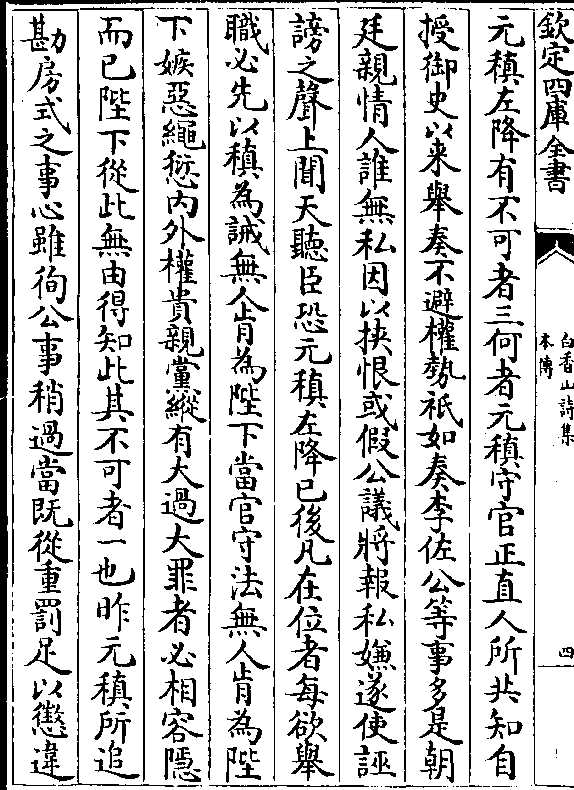 欽定四庫全書
白香山詩集
本傳
四
元稹左降有不可者三何者元稹守官正直人所共知自
授御史以来舉奏不避權勢祇如奏李佐公等事多是朝
廷親情人誰無私因以挾恨或假公議將報私嫌遂使誣
謗之聲上聞天聽臣恐元稹左降已後凡在位者每欲舉
職必先以稹為誡無人肯為陛下當官守法無人肯為陛
下嫉惡繩愆内外權貴親黨縱有大過大罪者必相容隱
而已陛下從此無由得知此其不可者一也昨元稹所追
勘房式之事心雖徇公事稍過當既從重罰足以懲違